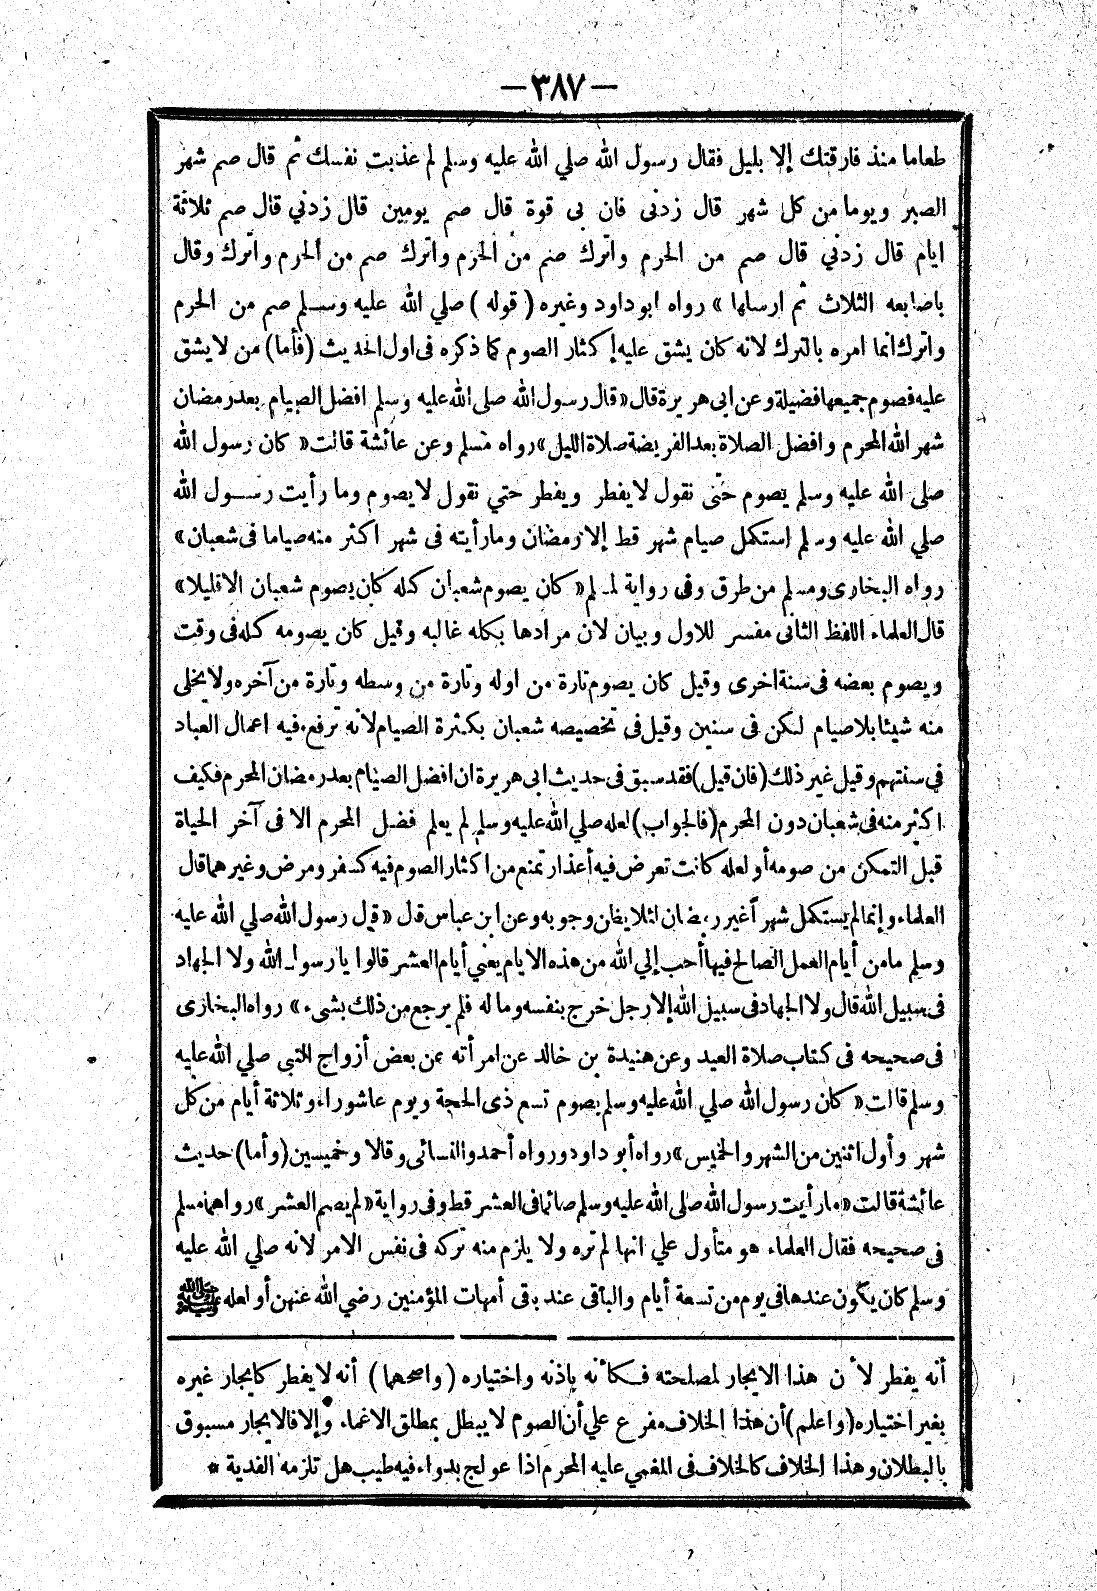 — ٣٨٧ —
طعاما منذ فارقتك إلا بليل فقال رسول الله صلي الله عليه وسلم لم عذبت نفسك ثم قال صم شهر
الصبر ويوما من كل شهر قال زدنى فان بى قوة قال صم يومين قال زدني قال صم ثلاثة
ايام قال زدني قال صم من الحرم واترك صم من الحرم واترك صم من الحرم واترك وقال
باصابعه الثلاث ثم ارسلها » رواه ابو داود وغيره ( قوله ) صلي الله عليه وسلم صم من الحرم
واترك انما امره بالترك لانه كان يشق عليه إكثار الصوم كما ذكره فى اول الحديث (فأما) من لا يشق
عليه فصوم جميعها فضيلة وعن ابى هريرة قال « قال رسول الله صلى الله عليه وسلم افضل الصيام بعد رمضان
شهر الله المحرم وافضل الصلاة بعد الفريضة صلاة الليل » رواه مسلم وعن عائشة قالت « كان رسول الله
صلى الله عليه وسلم يصوم حتى نقول لا يفطر ويفطر حتي نقول لا يصوم وما رأيت رسول الله
صلي الله عليه وسلم استكمل صيام شهر قط إلا رمضان وما رأيته فى شهر اكثر منه صياما فى شعبان »
رواه البخارى ومسلم من طرق وفى رواية لمسلم « كان يصوم شعبان كله كان يصوم شعبان الا قليلا »
قال العلماء اللفظ الثانى مفسر للاول وبيان لان مرادها بكله غالبه وقيل كان يصومه كله فى وقت
ويصوم بعضه فى سنة اخرى وقيل كان يصوم تارة من اوله وتارة من وسطه وتارة من آخره ولا يخلى
منه شيئا بلا صيام لكن فى سنين وقيل فى تخصيصه شعبان بكثرة الصيام لانه ترفع فيه اعمال العباد
فى سنتهم وقيل غير ذلك (فان قيل) فقد سبق فى حديث ابى هريرة ان افضل الصيام بعد رمضان المحرم فكيف
اكثر منه فى شعبان دون المحرم (فالجواب) لعله صلي الله عليه وسلم لم يعلم فضل المحرم الا فى آخر الحياة
قبل التمكن من صومه أو لعله كانت تعرض فيه أعذار تمنع من اكثار الصوم فيه كسفر ومرض وغيرهما قال
العلماء وإنما لم يستكمل شهرا غير رمضان لئلا يظن وجوبه وعن ابن عباس قال « قال رسول الله صلي الله عليه
وسلم ما من أيام العمل الصالح فيها أحب إلي الله من هذه الايام يعني أيام العشر قالوا يا رسول الله ولا الجهاد
فى سبيل الله قال ولا الجهاد فى سبيل الله إلا رجل خرج بنفسه وماله فلم يرجع من ذلك بشىء » رواه البخارى
فى صحيحه فى كتاب صلاة العيد وعن هنيدة بن خالد عن امرأته عن بعض أزواج النبى صلي الله عليه
وسلم قالت « كان رسول الله صلي الله عليه وسلم يصوم تسع ذى الحجة ويوم عاشوراء وثلاثة أيام من كل
شهر وأول اثنين من الشهر والخميس » رواه أبو داود ورواه أحمد والنسائى وقالا وخميسين (وأما) حديث
عائشة قالت « ما رأيت رسول الله صلى الله عليه وسلم صائما فى العشر قط وفى رواية « لم يصم العشر » رواهما مسلم
فى صحيحه فقال العلماء هو متأول علي انها لم تره ولا يلزم منه تركه فى نفس الامر لانه صلي الله عليه
وسلم كان يكون عندها فى يوم من تسعة أيام والباقى عند باقى أمهات المؤمنين رضي الله عنهن أو لعله ﷺ
أنه يفطر لأن هذا الايجار لمصلحته فكأنه باذنه واختياره (واصحهما) أنه لا يفطر كايجار غيره
بغير اختياره (واعلم) أن هذا الخلاف مفرع علي أن الصوم لا يبطل بمطلق الاغماء وإلا فالايجار مسبوق
بالبطلان وهذا الخلاف كالخلاف فى المغمي عليه المحرم اذا عولج بدواء فيه طيب هل تلزمه الفدية *